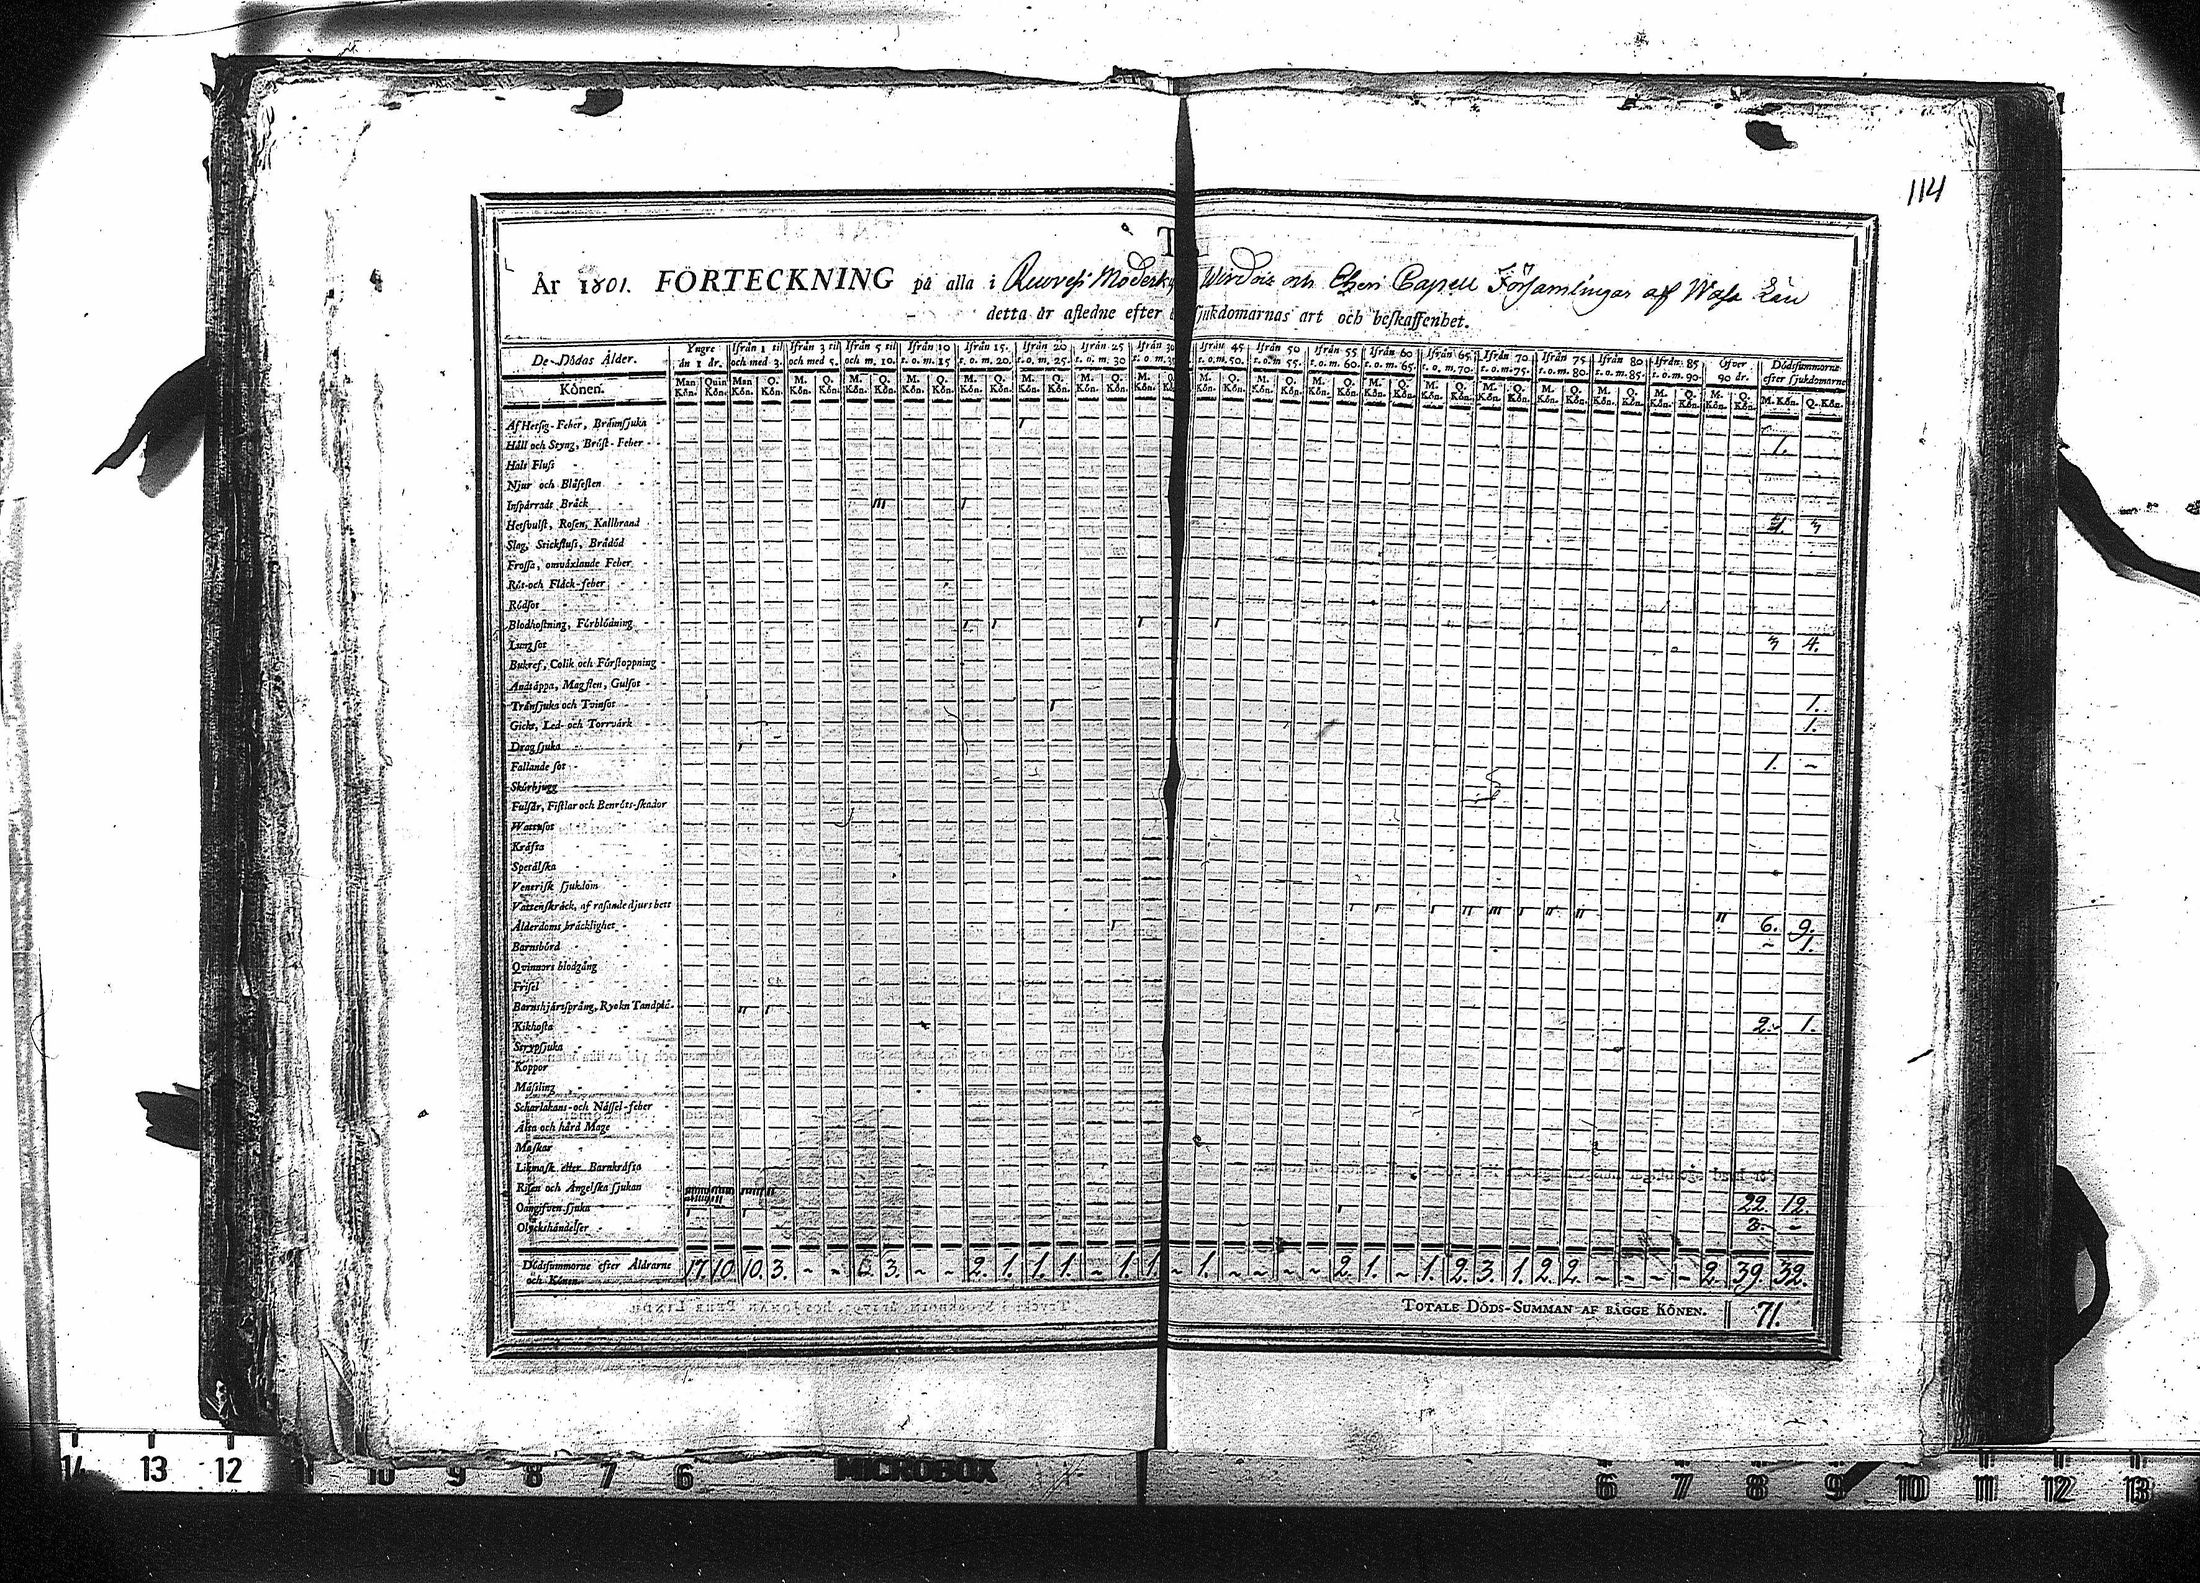 114
År 1801. FÖRTECKNING på alla i Ruovesi Moderky Wirdois och Etseri Capell Församlingar af Wasa Län
detta år afledne efter sjukdomarnas art och beskaffenhet.
De Dödas Ålder. Yngre än 1 år. Ifrån 1 til och med 3. Ifrån 3 til och med 5. Ifrån 5 til och m. 10. Ifrån 10 t. o. m. 15 Ifrån 15. t. o. m. 20. Ifrån 20 t. o. m. 25. Ifrån 25 t. o. m. 30 Ifrån 30 Ifrån 45 t. o. m. 50. Ifrån 50 t. o. m. 55. Ifrån 55 t. o. m. 60. Ifrån 60 t. o. m. 65. Ifrån 65. t. o. m. 70. Ifrån 70. t. o. m. 75. Ifrån 75 t. o. m. 80. Ifrån 80 t. o. m. 85. Ifrån 85 t. o. m. 90. Öfver 90 år. Dödsummorne efter sjukdomarne
Könen. Man Kön. Quin Kön. Man Kön. Q. Kön. M. Kön. Q. Kön. M. Kön. Q. Kön. M. Kön. Q. Kön. M. Kön. Q. Kön. M. Kön. Q. Kön. M. Kön. Q. Kön. M. Kön. Q. Kön. M. Kön. Q. Kön. M. Kön. Q. Kön. M. Kön. Q. Kön. M. Kön. Q. Kön. M. Kön. Q. Kön. M. Kön. Q. Kön. M. Kön. Q. Kön. M. Kön. Q. Kön. M. Kön. Q. Kön. M. Kön. Q. Kön.
Af Hetsig-Feber, Brännsjuka
Håll och Styng, Bröst-Feber 1.
Hals Fluss
Njur och Blåsesten
Inspärradt Bråck
Hetsbulst, Rosen, Kallbrand 3
Slag, Stickfluss, Brådöd
Frossa, omväxlande Feber
Röt-och Fläck-feber
Rödsot
Blodhostning, Förblödning
Lungsot 3 4.
Bukref, Colik och Förstoppning
Andtäppa, Magsten, Gulsot
Trånsjuka och Tvinsot 1.
Gickt, Led- och Torrvärk 1.
Dragsjuka
Fallande sot 1.
Skörbjugg
Fulsår, Fistlar och Benröts-skador
Wattusot
Kräfta
Spetälska
Venerisk sjukdom
Vattenskräck, af rasande djurs bett
Ålderdoms bräcklighet 6. 9.
Barnsbörd 1.
Qvinnors blodgång
Frisel
Barnshjärtsprång, Ryck och Tandplå.
Kikhosta 2. 1.
Strypsjuka
Koppor
Mässling
Scharlakans-och Nässel-feber
Älta och hård Mage
Maskar
Likmask eller Barnkräfta
Risen och Ängelska sjukan
Oangifven sjuka 22. 12.
Olyckshändelser 3.
Dödsummorne efter Åldrarne och Könen. 17. 10. 10. 3. 3. 2. 1. 1. 1. 1. 1. 1. 2. 1. 1. 2. 3. 1. 2. 2. 2. 39. 32.
TOTALE DÖDS-SUMMAN AF BÄGGE KÖNEN. 71.
14 13 12 11 10 9 8 7 6 MICROBOX 6 7 8 9 10 11 12 13